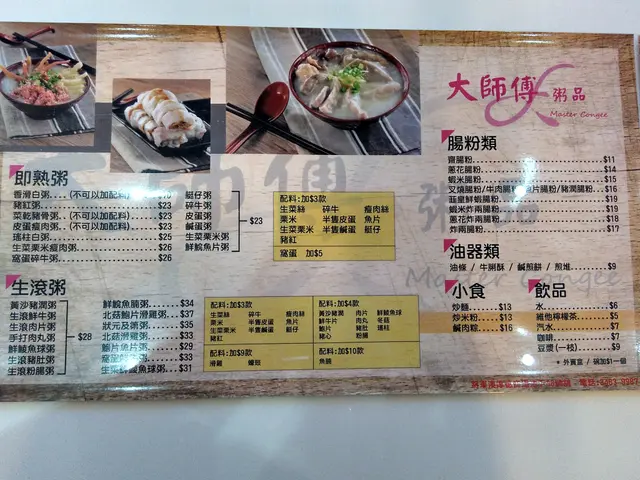 大師傅 粥品
Master Congee
即熟粥
香滑白粥....(不可以加配料)
豬紅粥 $23
菜乾豬骨粥....(不可以加配料) $23
皮蛋瘦肉粥....(不可以加配料) $25
瑤柱白粥 $25
生菜粟米瘦肉粥 $26
窩蛋碎牛粥 $26
艇仔粥
碎牛粥
魚片粥
皮蛋粥
鹹蛋粥
生菜粟米粥
鮮鯇魚片粥
$23
配料:加$3款
生菜絲 碎牛 瘦肉絲
粟米 半隻皮蛋 魚片
生菜粟米 半隻鹹蛋 艇仔
豬紅
窩蛋 加$5
生滾粥
黃沙豬潤粥
生滾鮮牛粥
生滾肉片粥
手打肉丸粥
鮮鯪魚球粥
生滾豬肚粥
生滾粉腸粥
$28
鮮鯇魚腩粥 $34
北菇鮑片滑雞粥 $37
狀元及第粥 $35
北菇滑雞粥 $33
鮑片魚片粥 $29
$33
生菜鮮鯪魚球粥 $31
配料:加$3款
生菜絲 碎牛 瘦肉絲
粟米 半隻皮蛋 魚片
生菜粟米 半隻鹹蛋 艇仔
豬紅
配料:加$4款
黃沙豬潤 肉片 鮮鯪魚球
鮮牛片 肉丸 冬菇
鮑片 豬肚 瑤柱
豬心 粉腸
配料:加$9款
滑雞 蠔豉
配料:加$10款
魚腩
腸粉類
齋腸粉 $11
蔥花腸粉 $14
蝦米腸粉 $15
叉燒腸粉/牛肉腸粉/魚片腸粉/豬潤腸粉 $16
韮皇鮮蝦腸粉 $19
蝦米炸兩腸粉 $19
蔥花炸兩腸粉 $18
炸兩腸粉 $17
油器類
油條 / 牛脷酥 / 鹹煎餅 / 煎堆 $9
小食
炒麵 $13
炒米粉 $13
鹹肉粽 $16
飲品
水 $6
維他檸檬茶 $5
汽水 $7
咖啡 $7
豆漿 (一枝) $9
+ 外賣盒 / 碗加$1一個